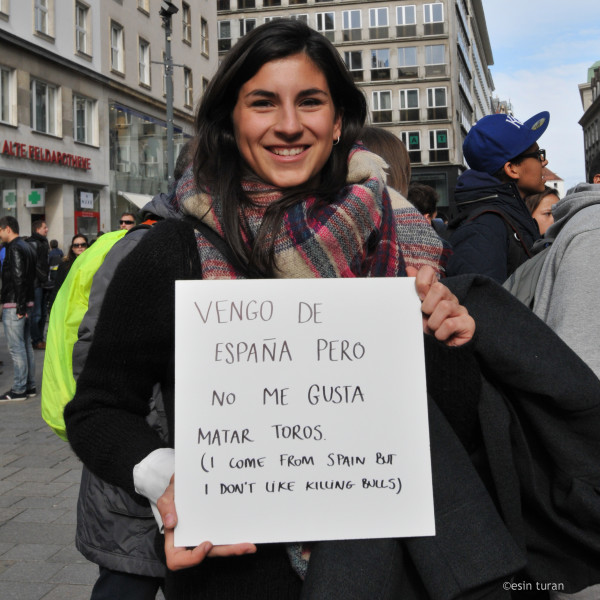 ALTE FELDAPOTHEKE
VENGO DE
ESPAÑA PERO
NO ME GUSTA
MATAR TOROS.
(I COME FROM SPAIN BUT
I DON'T LIKE KILLING BULLS)
©esin turan